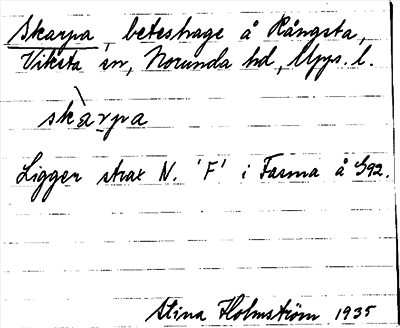 Skarpa, beteshage å Rångsta,
Viksta sn, Norunda hd, Upps. l.
skàrpa
Ligger strax N. 'F' i Fasma å G92.
Stina Holmström 1935